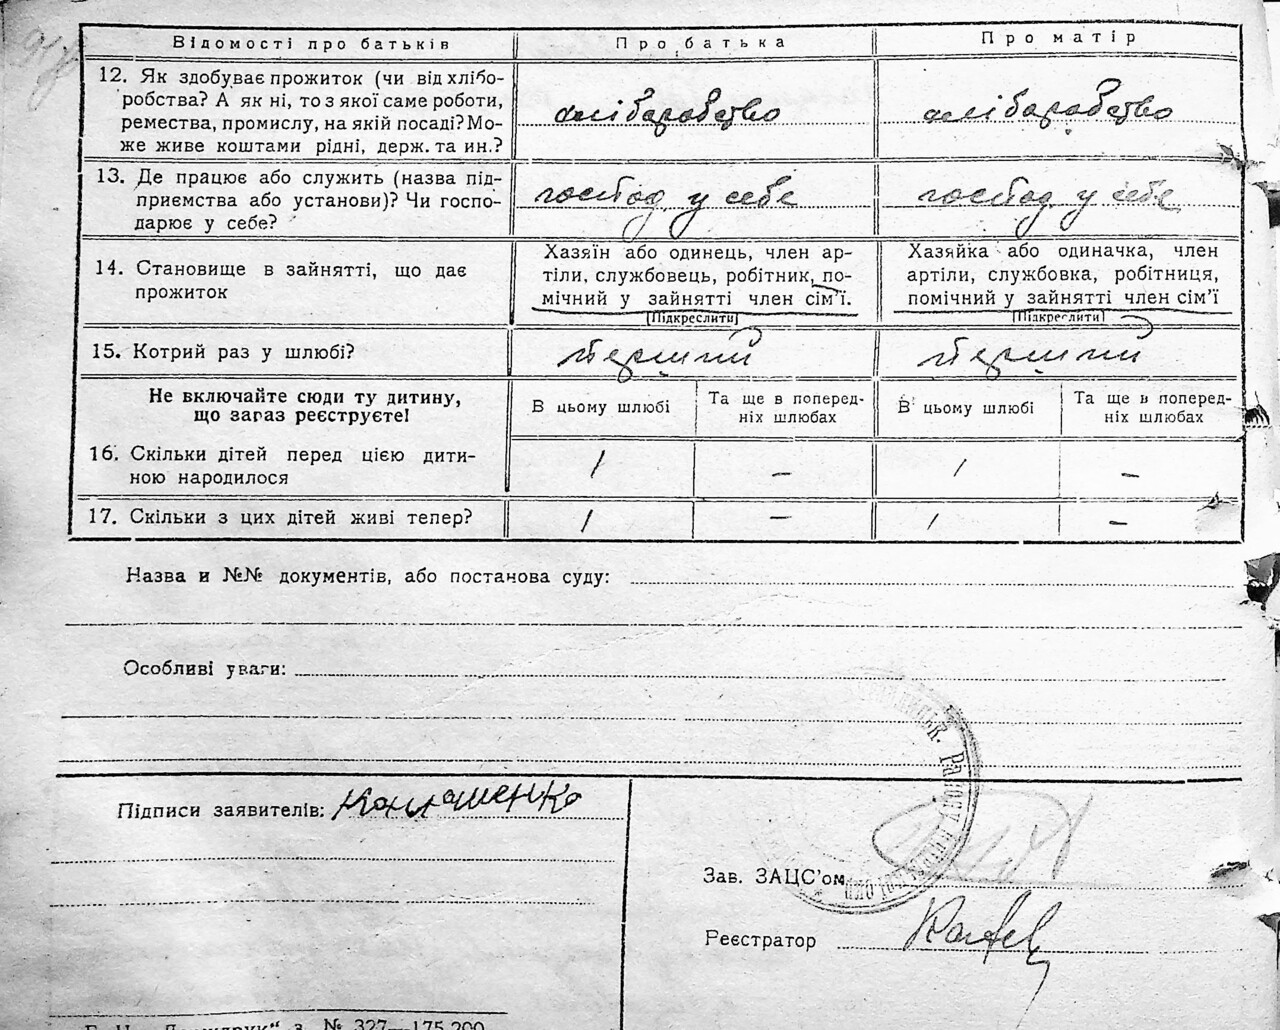 Відомості про батьків Про батька Про матір
12. Як здобуває прожиток (чи від хлібо-
робства? А як ні, то з якої саме роботи,
ремества, промислу, на якій посаді? Мо-
же живе коштами рідні, держ. та ин.?
хліборобство хліборобство
13. Де працює або служить (назва під-
приємства або установи)? Чи госпо-
дарює у себе?
господ у себе господ у себе
14. Становище в зайнятті, що дає
прожиток
Хазяїн або одинець, член ар-
тіли, службовець, робітник, по-
мічний у зайнятті член сім’ї.
(Підкреслити)
Хазяйка або одиначка, член
артіли, службовка, робітниця,
помічний у зайнятті член сім’ї
(Підкреслити)
15. Котрий раз у шлюбі? перший перший
Не включайте сюди ту дитину,
що зараз реєструєте!
В цьому шлюбі Та ще в поперед-
ніх шлюбах В цьому шлюбі Та ще в поперед-
ніх шлюбах
16. Скільки дітей перед цією дити-
ною народилося
1 – 1 –
17. Скільки з цих дітей живі тепер? 1 – 1 –
Назва и №№ документів, або постанова суду:
Особливі уваги:
Підписи заявителів:
Зав. ЗАЦС’ом
Реєстратор
№ 327—175.200